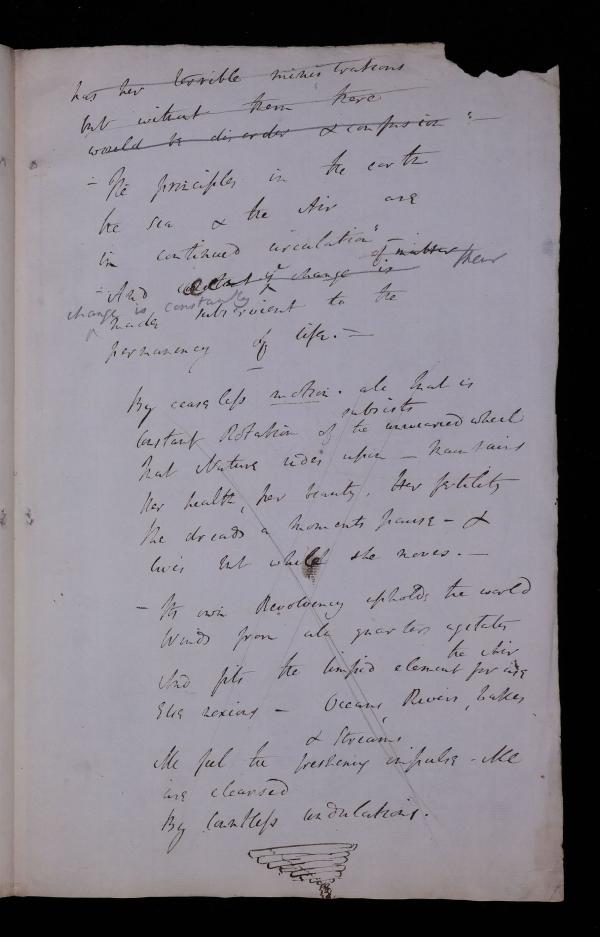 has her terrible ministrations
but without them there
would be disorder & confusion" —
— The principles in the earth
the sea & the Air are
in continued circulation" —
of matter their
"And change is
change is constantly
made subservient to the
permanency of life. —
By ceaseless motion. all that is
subsists
Constant Rotation of the unwearied wheel
That Nature rides upon — maintains
Her health, her beauty, Her fertility
She dreads a moments pause — &
lives but while she moves. —
— Its own Revolvency upholds the world
Winds from all quarters agitate
the Air
And fits the limpid element for use
Else noxious — Oceans Rivers, Lakes
& Streams
All feel the freshening impulse - All
are cleansed
By Countless undulations.